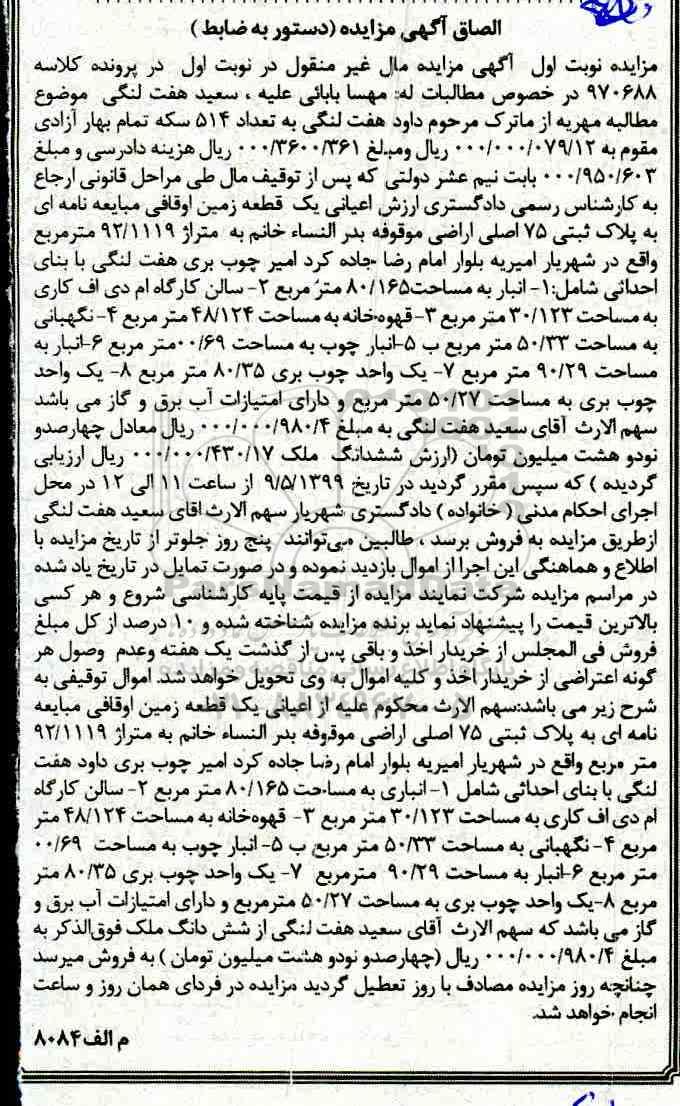 الصاق آگهی مزایده (دستور به ضابط)
مزایده نوبت اول آگهی مزایده مال غیر منقول در نوبت اول در پرونده کلاسه
۹۷۰۶۸۸ در خصوص مطالبات له: مهسا بابائی علیه ، سعید هفت لنگی موضوع
مطالبه مهریه از ماترک مرحوم داود هفت لنگی به تعداد ۵۱۴ سکه تمام بهار آزادی
مقوم به ۰۰۰/۰۰۰/۰۷۹/۱۲ ریال ومبلغ ۰۰۰/۳۶۰۰/۳۶۱ ریال هزینه دادرسی و مبلغ
۰۰۰/۹۵۰/۶۰۳ بابت نیم عشر دولتی که پس از توقیف مال طی مراحل قانونی ارجاع
به کارشناس رسمی دادگستری ارزش اعیانی یک قطعه زمین اوقافی مبایعه نامه ای
به پلاک ثبتی ۷۵ اصلی اراضی موقوفه بدر النساء خانم به متراژ ۹۲/۱۱۱۹ مترمربع
واقع در شهریار امیریه بلوار امام رضا جاده کرد امیر چوب بری هفت لنگی با بنای
احداثی شامل:۱- انبار به مساحت۸۰/۱۶۵ متر مربع ۲- سالن کارگاه ام دی اف کاری
به مساحت ۳۰/۱۲۳ متر مربع ۳- قهوه‌خانه به مساحت ۴۸/۱۲۴ متر مربع ۴- نگهبانی
به مساحت ۵۰/۳۳ متر مربع ب ۵-انبار چوب به مساحت ۰۰/۶۹متر مربع ۶-انبار به
مساحت ۹۰/۲۹ متر مربع ۷- یک واحد چوب بری ۸۰/۳۵ متر مربع ۸- یک واحد
چوب بری به مساحت ۵۰/۲۷ متر مربع و دارای امتیازات آب برق و گاز می باشد
سهم الارث آقای سعید هفت لنگی به مبلغ ۰۰۰/۰۰۰/۹۸۰/۴ ریال معادل چهارصدو
نودو هشت میلیون تومان (ارزش ششدانگ ملک ۰۰۰/۰۰۰/۴۳۰/۱۷ ریال ارزیابی
گردیده ) که سپس مقرر گردید در تاریخ ۹/۵/۱۳۹۹ از ساعت ۱۱ الی ۱۲ در محل
اجرای احکام مدنی ( خانواده ) دادگستری شهریار سهم الارث اقای سعید هفت لنگی
ازطریق مزایده به فروش برسد ، طالبین می‌توانند پنج روز جلوتر از تاریخ مزایده با
اطلاع و هماهنگی این اجرا از اموال بازدید نموده و در صورت تمایل در تاریخ یاد شده
در مراسم مزایده شرکت نمایند مزایده از قیمت پایه کارشناسی شروع و هر کسی
بالاترین قیمت را پیشنهاد نماید برنده مزایده شناخته شده و ۱۰ درصد از کل مبلغ
فروش فی المجلس از خریدار اخذ و باقی پس از گذشت یک هفته وعدم وصول هر
گونه اعتراضی از خریدار اخذ و کلیه اموال به وی تحویل خواهد شد. اموال توقیفی به
شرح زیر می باشد:سهم الارث محکوم علیه از اعیانی یک قطعه زمین اوقافی مبایعه
نامه ای به پلاک ثبتی ۷۵ اصلی اراضی موقوفه بدر النساء خانم به متراژ ۹۲/۱۱۱۹
متر مربع واقع در شهریار امیریه بلوار امام رضا جاده کرد امیر چوب بری داود هفت
لنگی با بنای احداثی شامل ۱- انباری به مساحت ۸۰/۱۶۵ متر مربع ۲- سالن کارگاه
ام دی اف کاری به مساحت ۳۰/۱۲۳ متر مربع ۳- قهوه‌خانه به مساحت ۴۸/۱۲۴ متر
مربع ۴- نگهبانی به مساحت ۵۰/۳۳ متر مربع ب ۵- انبار چوب به مساحت ۰۰/۶۹
متر مربع ۶-انبار به مساحت ۹۰/۲۹ مترمربع ۷- یک واحد چوب بری ۸۰/۳۵ متر
مربع ۸-یک واحد چوب بری به مساحت ۵۰/۲۷ مترمربع و دارای امتیازات آب برق و
گاز می باشد که سهم الارث آقای سعید هفت لنگی از شش دانگ ملک فوق‌الذکر به
مبلغ ۰۰۰/۰۰۰/۹۸۰/۴ ریال (چهارصدو نودو هشت میلیون تومان ) به فروش میرسد
چنانچه روز مزایده مصادف با روز تعطیل گردید مزایده در فردای همان روز و ساعت
انجام خواهد شد.
م الف۸۰۸۴